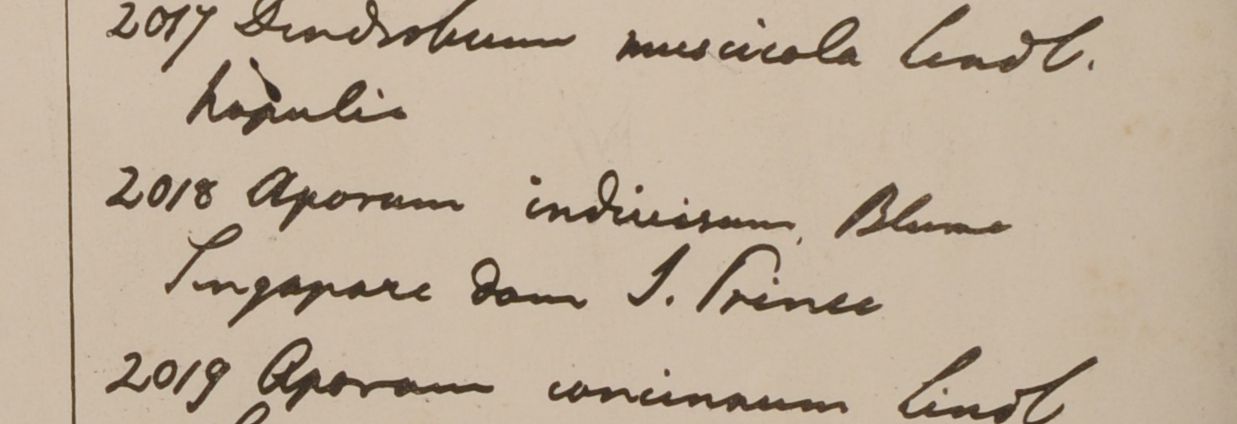 2017 Dendrobium muscicola Lindl.
2018 Aporum indivisum Blume
Singapore dom J. Prince
2019 Aporum concinnum Lindl